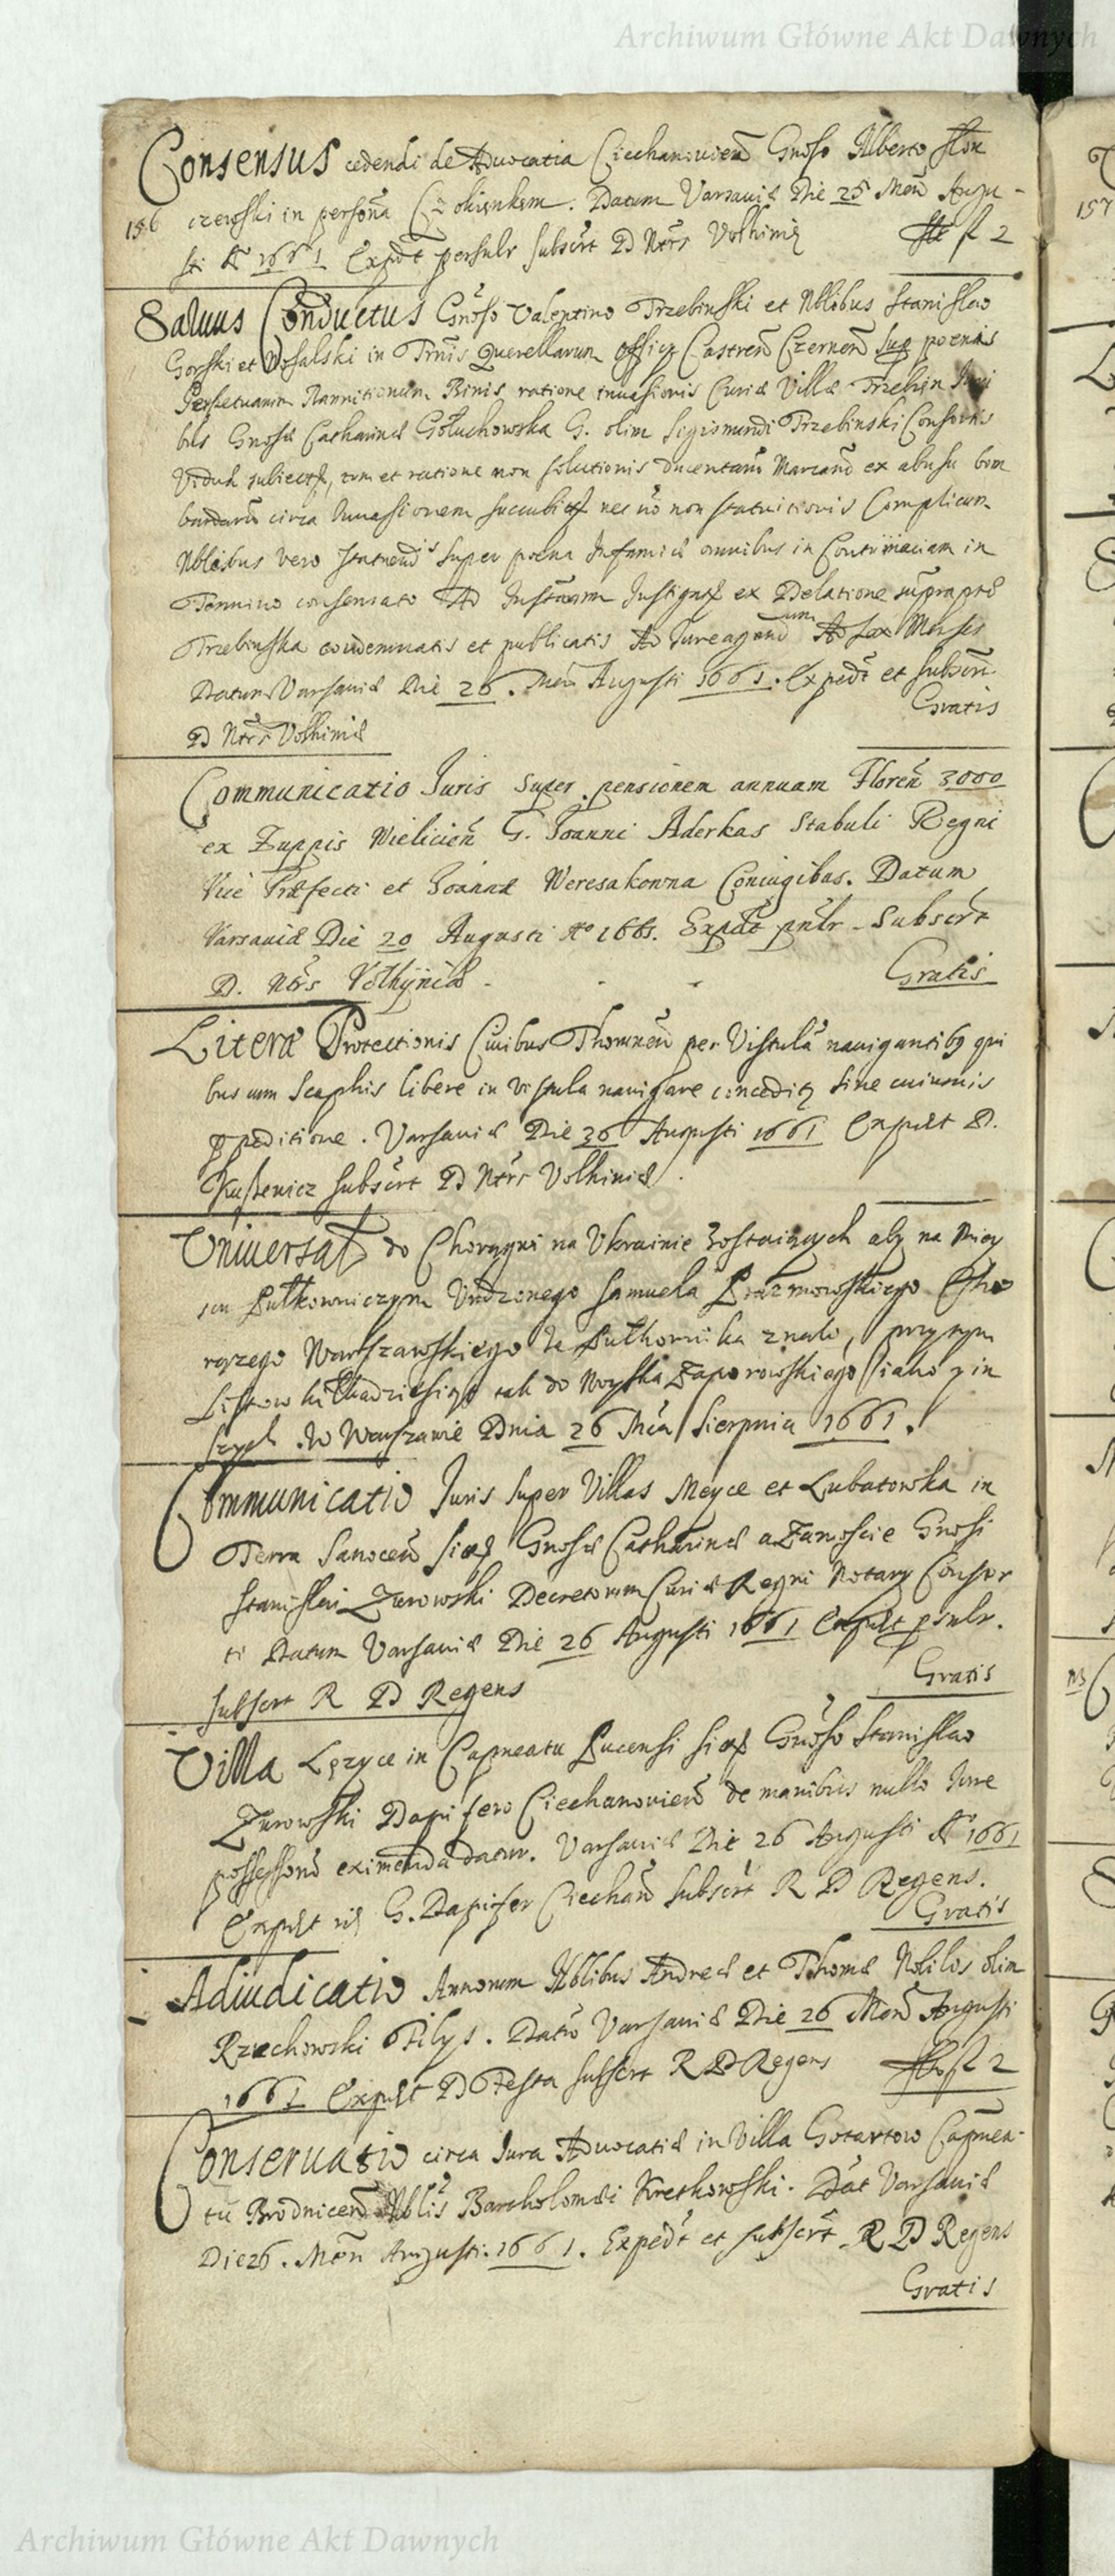 Archiwum Główne Akt Dawnych
Consensus cedendi de Advocatia Ciechanovien Gnoso Alberto Slon
156 czewski in persona Datum Varsaviæ Die 25 Men Augu-
sti Aº 1661 Expdt persubr Subscrt D Ntrs Volhiniæ fl 2
Salvus Conductus Gnoso Valentino Trzebinski et Nblibus Stanislao
Gorski et Wosalski in Trnis Querellarum Officij Castren Czernen sup poenis
Perpetuarum Bannitionum Binis ratione invasionis Curiæ Villæ Trzebin
bus Gnosæ Catharinæ Gołuchowska G. olim Sigismundi Trzebinski Consortis
Viduæ subiectæ, tum et ratione non solutionis Ducentarū Marcarū ex abusu bom
bardarū circa Invasionem nec nō non statuitionis Complicum
Nblibus vero statuendis super poena Infamiæ omnibus in Contumaciam in
Termino conservato Ad Instāam Instigās ex Delatione supraptæ
Trzebinska condemnatis et publicatis Ad Iure agendum Ad sex Menses
Datum Varsaviæ Die 26. Men Augusti 1661. Expdt et subscrt
Gratis
D Ntrs Volhiniæ
Communicatio Juris super pensionem annuam Floren 3000
ex Zuppis Wielicien G. Joanni Aderkas Stabuli Regni
Vice Præfecti et Joannæ Weresakowna Coniugibus. Datum
Varsaviæ Die 20 Augusti Aº 1661. Expdt pnlr Subscrt
D. Ntrs Volhyniæ. Gratis
Literæ Protectionis Civibus Thorunen per Vistulā navigantibq qui
bus cum Scaphis libere in Vistula navigare conceditq sine cuiusvis
ꝑpeditione. Varsaviæ Die 26 Augusti 1661 Expdt D.
Kußewicz subscrt D Ntrs Volhiniæ.
Universał do Chorągwi na Ukrainie zostaiących aby na Miey
scu Pułkowniczym Urdzonego Samuela Prazmowskiego Cho
rązego Warszawskiego za Pułkownika znali, przytym
Listow kilkadziesiąt tak do Woyska Zaporowskiego iako y in
szych. W Warszawie Dnia 26 Mca Sierpnia 1661.
Communicatio Juris super Villas Meyce et Lubatowka in
Terra Sanocen sitas Gnosæ Catharinæ a Zamoście Gnosi
Stanislai Zurowski Decretorum Curiæ Regni Notarij Consor
ti Datum Varsaviæ Die 26 Augusti 1661 Expdt psnlr.
Gratis
subscrt R D Regens
Villa Lęzyce in Capneatu Pucensi sita Gnoso Stanislao
Zurowski Dapifero Ciechanovien de manibus nullo Iure
possessorū eximenda datur. Varsaviæ Die 26 Augusti Aº 1661
Expdt G. Dapifer Ciechan subscrt R D Regens.
Gratis
Adiudicatio Annorum Nblibus Andreæ et Thomæ Nobilis olim
Rzechowski Filijs. Datū Varsaviæ Die 26 Men Augusti
1661 Expdt D Festa subscrt R D Regens fl 2
Conservatio circa Iura Advocatiæ in Villa Gotartow Capnea-
tū Brodnicen Nblis Bartholomæi Kretkowski. Dat Varsaviæ
Die 26. Men Augusti. 1661. Expedt et subscrt R D Regens
Gratis
157
Archiwum Główne Akt Dawnych